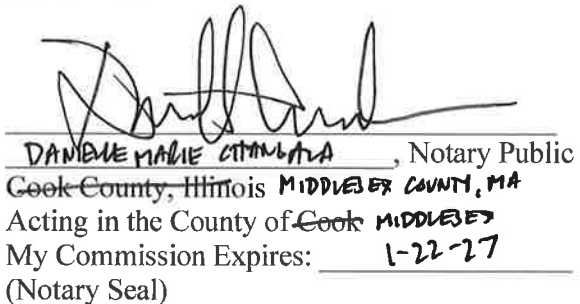 DANIELLE MARIE, Notary Public
Cook County, Illinois MIDDLESEX COUNTY, MA
Acting in the County of Cook MIDDLESEX
My Commission Expires: 1-22-27
(Notary Seal)